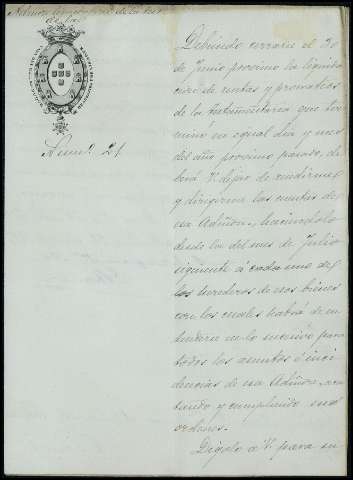 Núm.º 21
Debiendo cerrarse el 30
de Junio proximo la liquida
cion de rentas y prorrateos
de la Testamentaria que ter
minó en igual dia y mes
del año proximo pasado, de
berá V. dejar de rendirme
y dirigirme las cuentas de
esa Admon., haciendolo
desde la del mes de Julio
siguiente á cada uno de
los herederos de esos bienes
con los cuales habrá de en
tenderse en lo sucesivo para
todos los asuntos é inci
dencias de esa Admon., aca
tando y cumpliendo sus
ordenes.
Digolo á V. para su